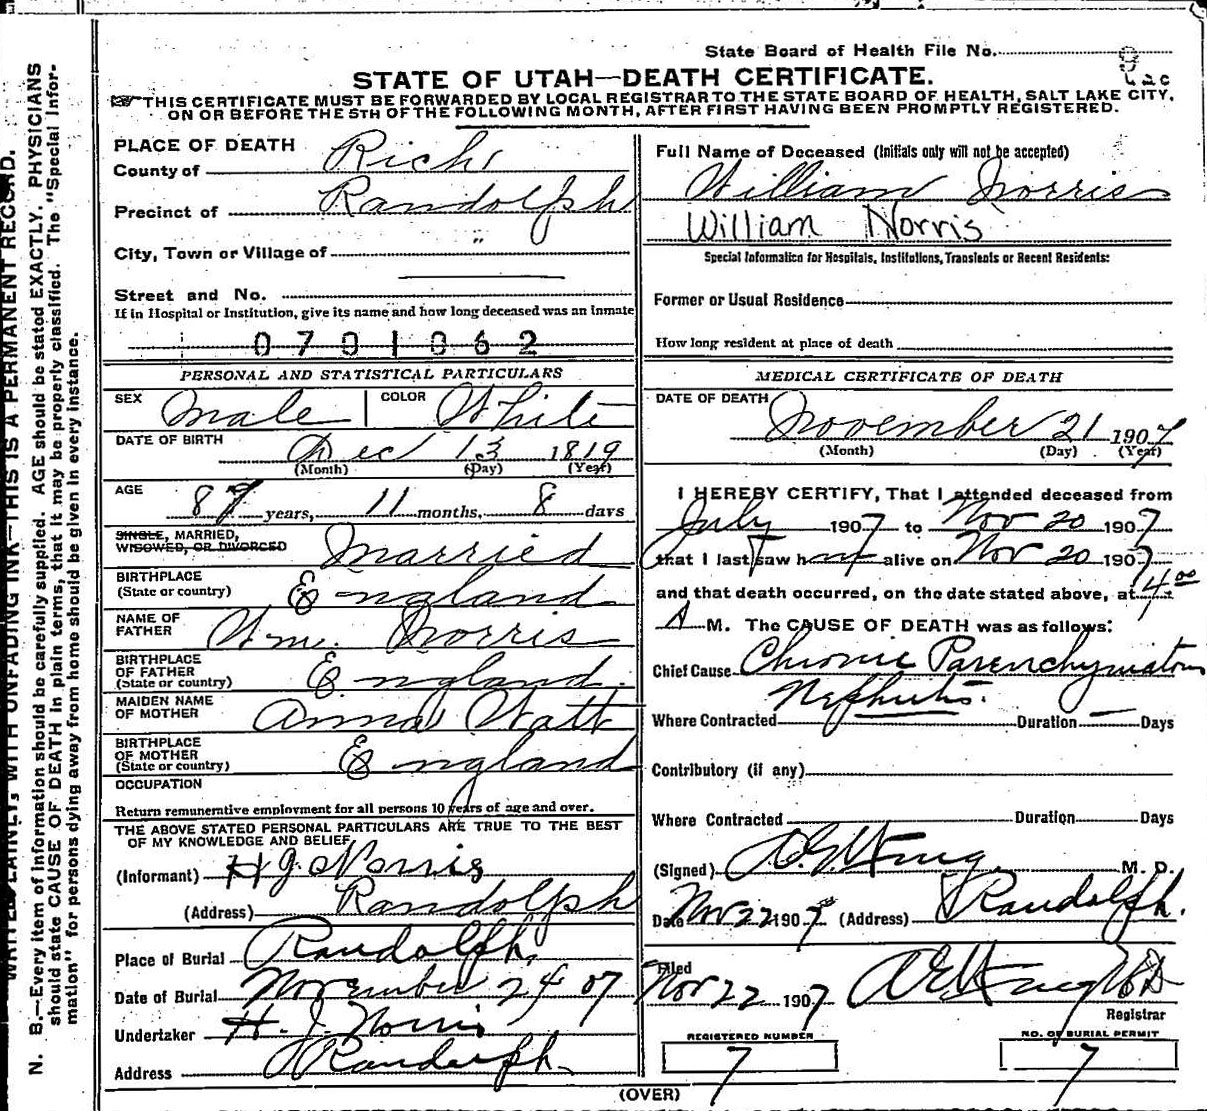 State Board of Health File No.
STATE OF UTAH—DEATH CERTIFICATE.
THIS CERTIFICATE MUST BE FORWARDED BY LOCAL REGISTRAR TO THE STATE BOARD OF HEALTH, SALT LAKE CITY,
ON OR BEFORE THE 5TH OF THE FOLLOWING MONTH, AFTER FIRST HAVING BEEN PROMPTLY REGISTERED.
PLACE OF DEATH
County of Rich
Precinct of Randolph
City, Town or Village of "
Street and No.
If in Hospital or Institution, give its name and how long deceased was an Inmate
0701062
PERSONAL AND STATISTICAL PARTICULARS
SEX Male COLOR White
DATE OF BIRTH
Dec 13 1819
(Month) (Day) (Year)
AGE
87 years, 11 months, 8 days
SINGLE, MARRIED,
WIDOWED, OR DIVORCED Married
BIRTHPLACE
(State or country) England
NAME OF
FATHER Wm. Norris
BIRTHPLACE
OF FATHER
(State or country) England
MAIDEN NAME
OF MOTHER Anna Watt
BIRTHPLACE
OF MOTHER
(State or country) England
OCCUPATION
Return remunerative employment for all persons 10 years of age and over.
THE ABOVE STATED PERSONAL PARTICULARS ARE TRUE TO THE BEST
OF MY KNOWLEDGE AND BELIEF
(Informant) H J Norris
(Address) Randolph
Place of Burial Randolph,
Date of Burial November 24 07
Undertaker H. J. Norris
Address Randolph.
Full Name of Deceased (Initials only will not be accepted)
William Norris
William Norris
Special Information for Hospitals, Institutions, Transients or Recent Residents:
Former or Usual Residence
How long resident at place of death
MEDICAL CERTIFICATE OF DEATH
DATE OF DEATH
November 21 1907
(Month) (Day) (Year)
I HEREBY CERTIFY, That I attended deceased from
July 1907 to Nov 20 1907
that I last saw him alive on Nov 20 1907
and that death occurred, on the date stated above, at 4 00
A M. The CAUSE OF DEATH was as follows:
Chief Cause Chronic Parenchymatous
Nephritis.
Where Contracted Duration — Days
Contributory (if any)
Where Contracted Duration Days
(Signed) M. D.
Date Nov 22 1907 (Address) Randolph.
Filed
Nov 22 1907
Registrar
REGISTERED NUMBER
7
NO. OF BURIAL PERMIT
7
(OVER)
WRITE PLAINLY, WITH UNFADING INK—THIS IS A PERMANENT RECORD.
N. B.—Every item of information should be carefully supplied. AGE should be stated EXACTLY. PHYSICIANS
should state CAUSE OF DEATH in plain terms, that it may be properly classified. The "Special Infor-
mation" for persons dying away from home should be given in every instance.